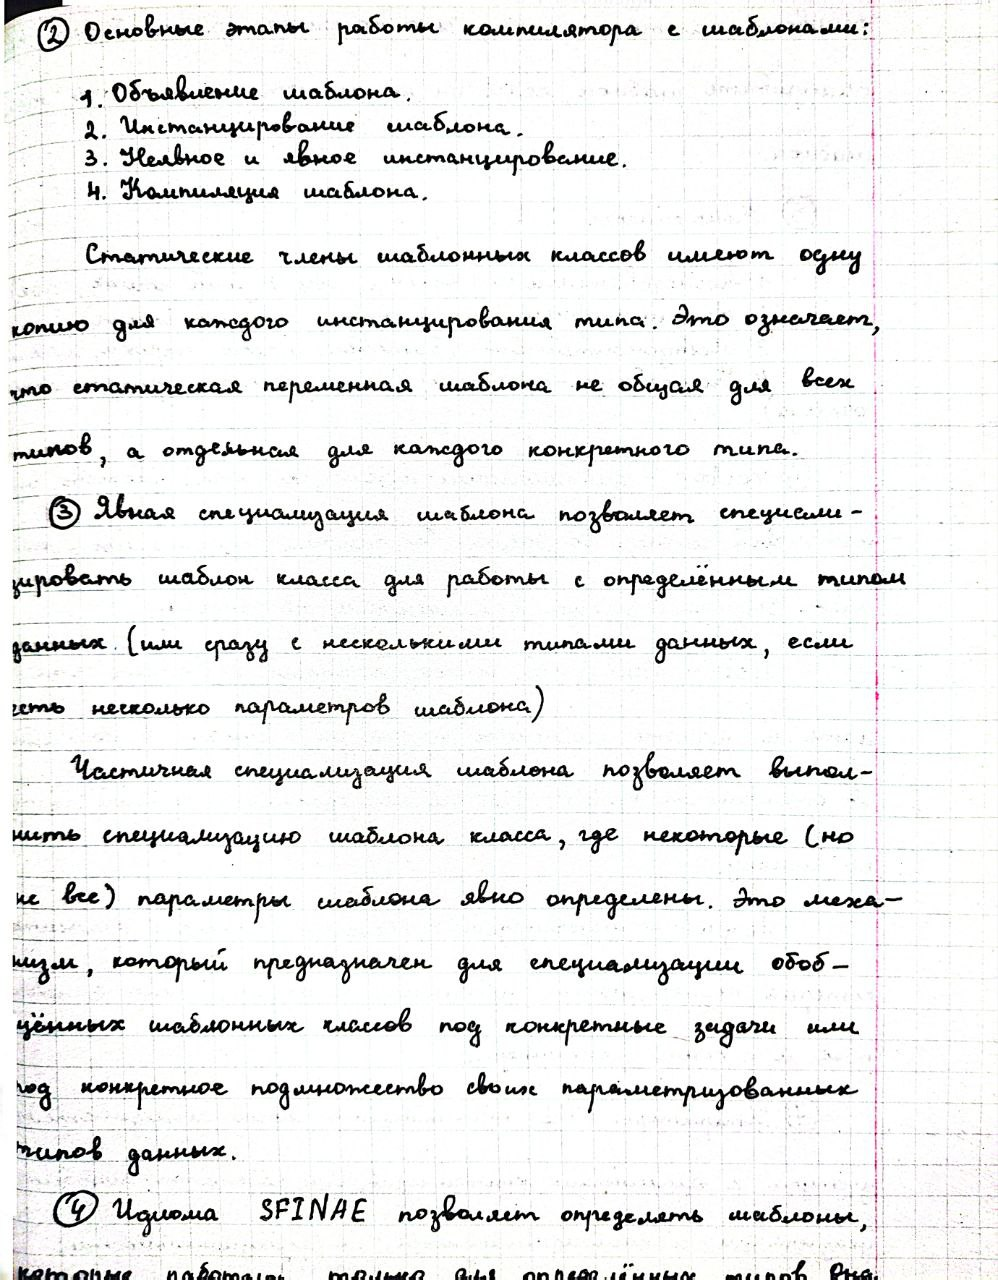 ② Основные этапы работы компилятора с шаблонами:
1. Объявление шаблона.
2. Инстанцирование шаблона.
3. Неявное и явное инстанцирование.
4. Компиляция шаблона.
Статические члены шаблонных классов имеют одну
копию для каждого инстанцирования типа. Это означает,
что статическая переменная шаблона не общая для всех
типов, а отдельная для каждого конкретного типа.
③ Явная специализация шаблона позволяет специали-
зировать шаблон класса для работы с определённым типом
данных (или сразу с несколькими типами данных, если
есть несколько параметров шаблона)
Частичная специализация шаблона позволяет выпол-
нить специализацию шаблона класса, где некоторые (но
не все) параметры шаблона явно определены. Это меха-
низм, который предназначен для специализации обоб-
щённых шаблонных классов под конкретные задачи или
под конкретное подмножество своих параметризованных
типов данных.
④ Идиома SFINAE позволяет определять шаблоны,
которые работают только для определённых типов